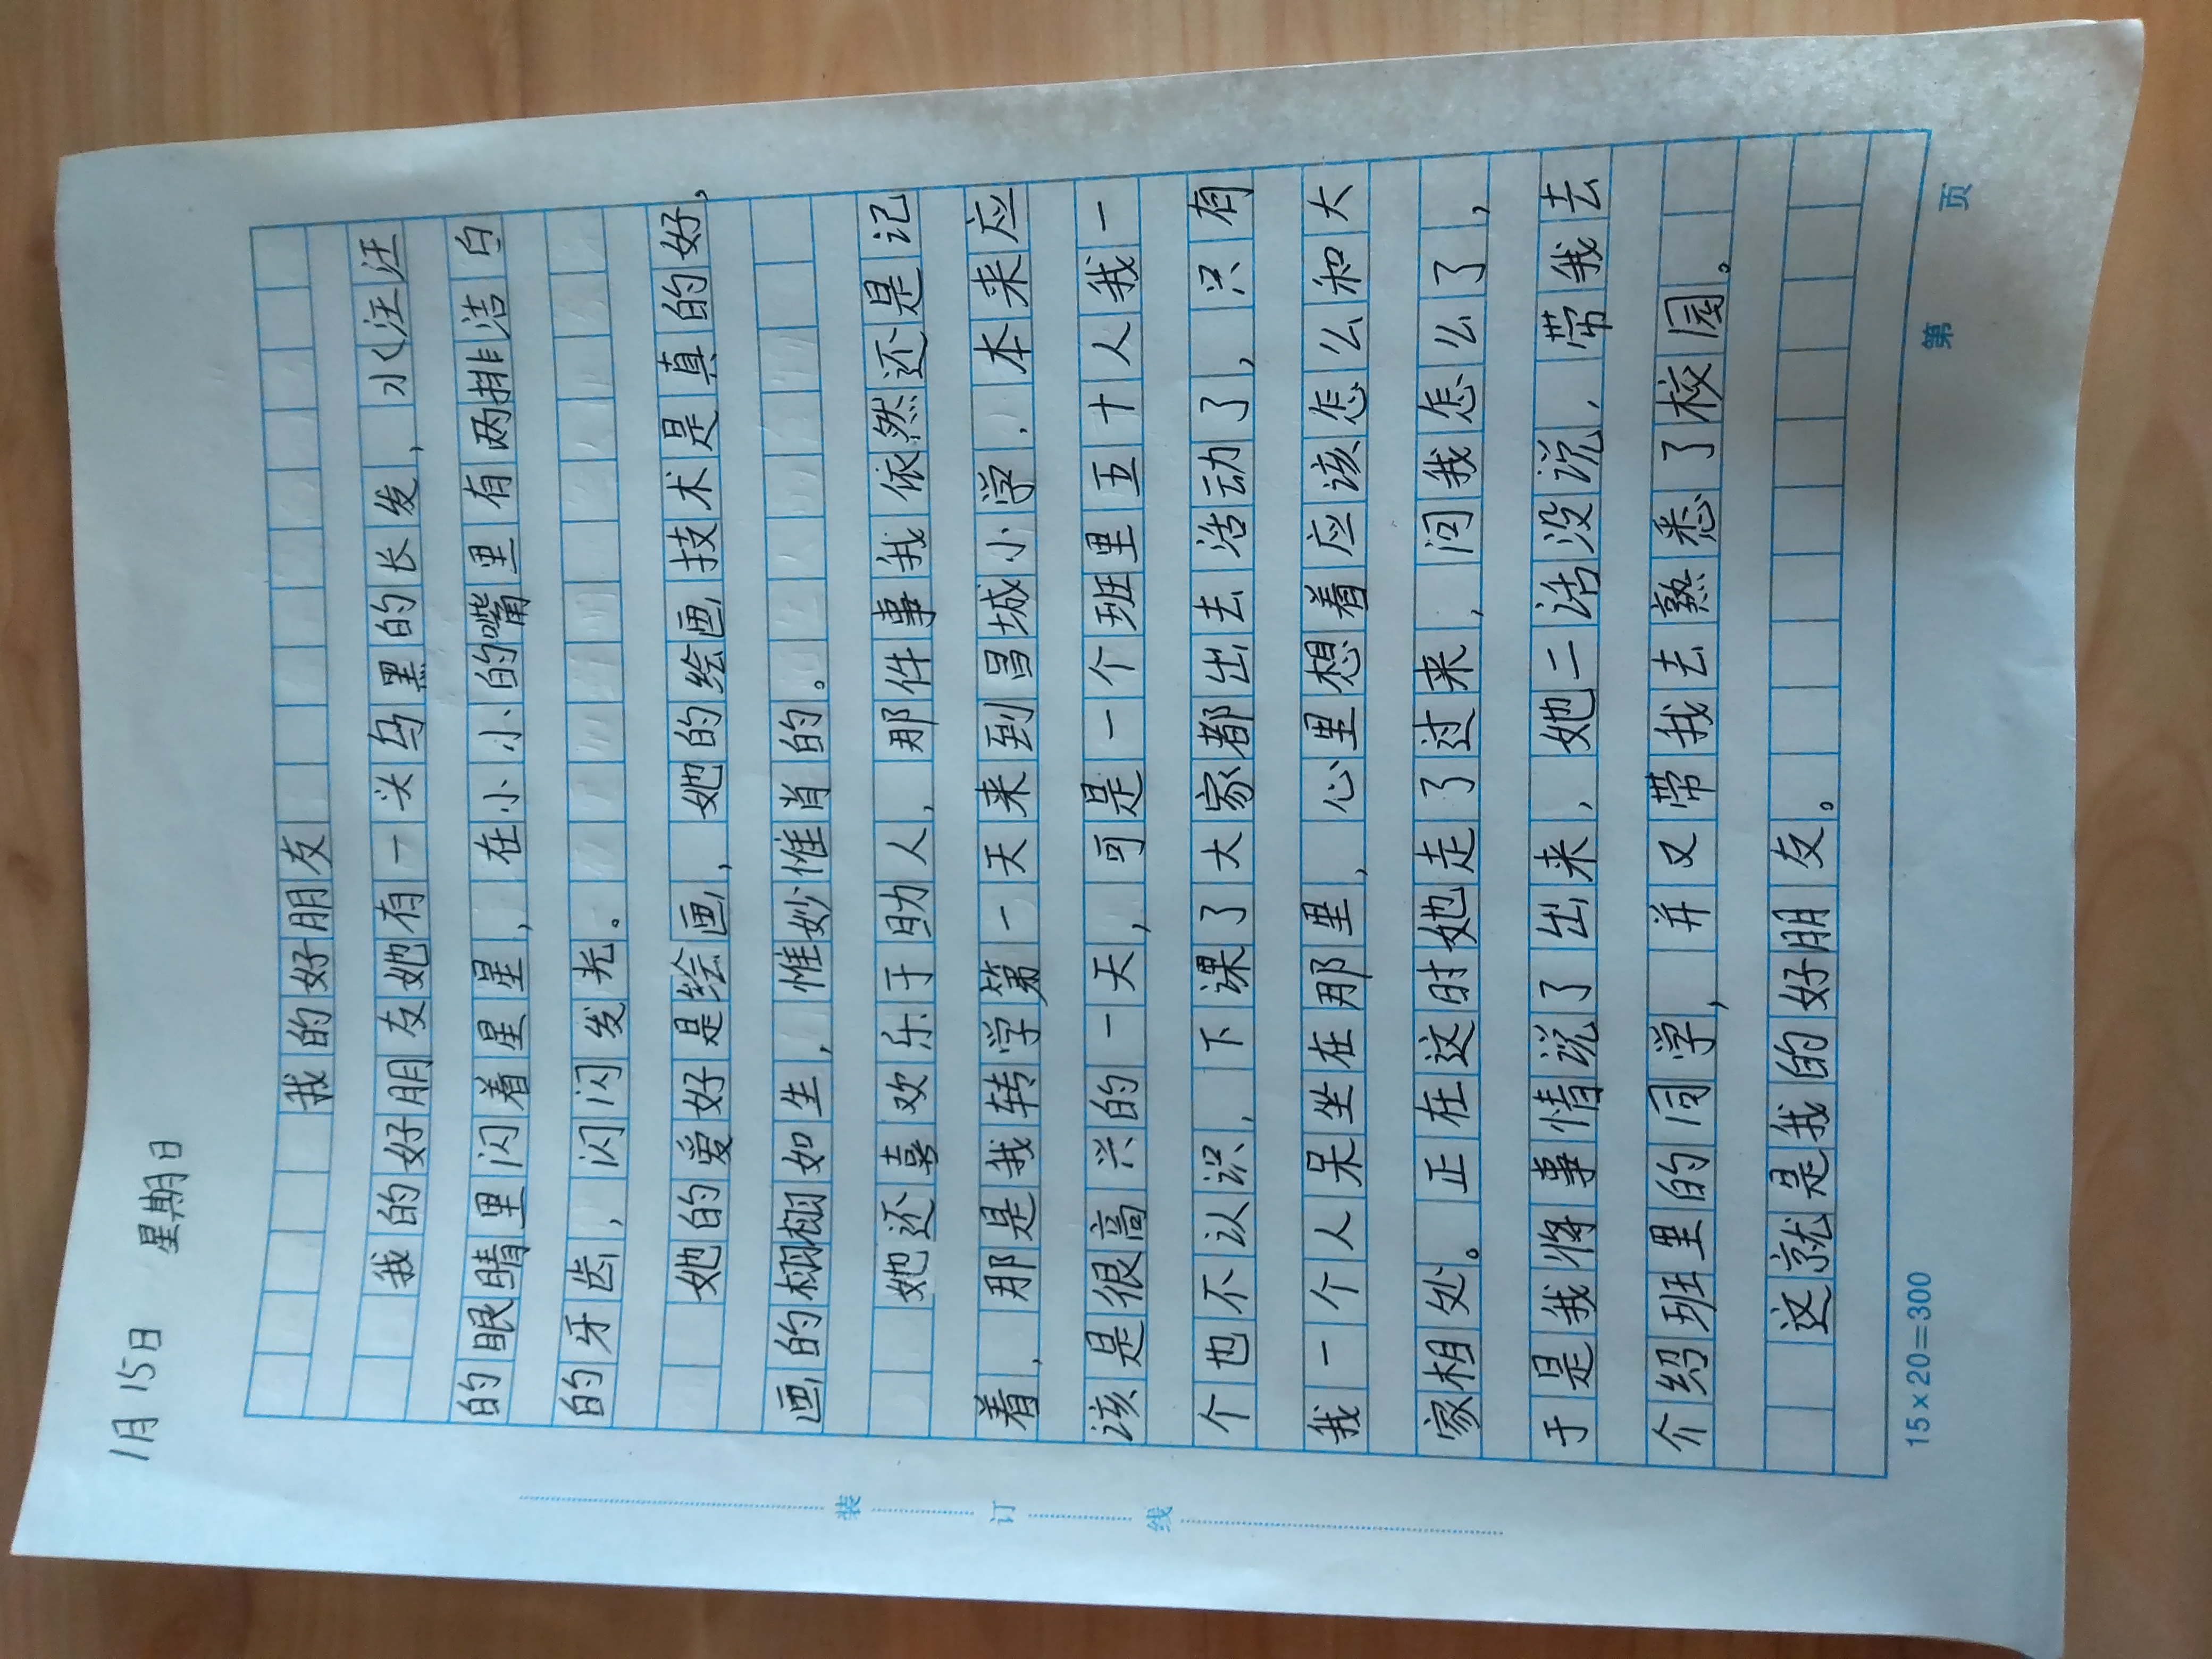 1月15日 星期日
我的好朋友
我的好朋友她有一头乌黑的长发，水汪汪
的眼睛里闪着星星，在小小的嘴里有两排洁白
的牙齿，闪闪发光。
她的爱好是绘画，她的绘画技术是真的好，
画的栩栩如生，惟妙惟肖的。
她还喜欢乐于助人，那件事我依然还是记
着，那是我转学第一天来到昌城小学，本来应
该是很高兴的一天，可是一个班里五十人我一
个也不认识，下课了大家都出去活动了，只有
我一个人呆坐在那里，心里想着应该怎么和大
家相处。正在这时她走了过来，问我怎么了，
于是我将事情说了出来，她二话没说，带我去
介绍班里的同学，并又带我去熟悉了校园。
这就是我的好朋友。
装订线
15×20=300
第 页